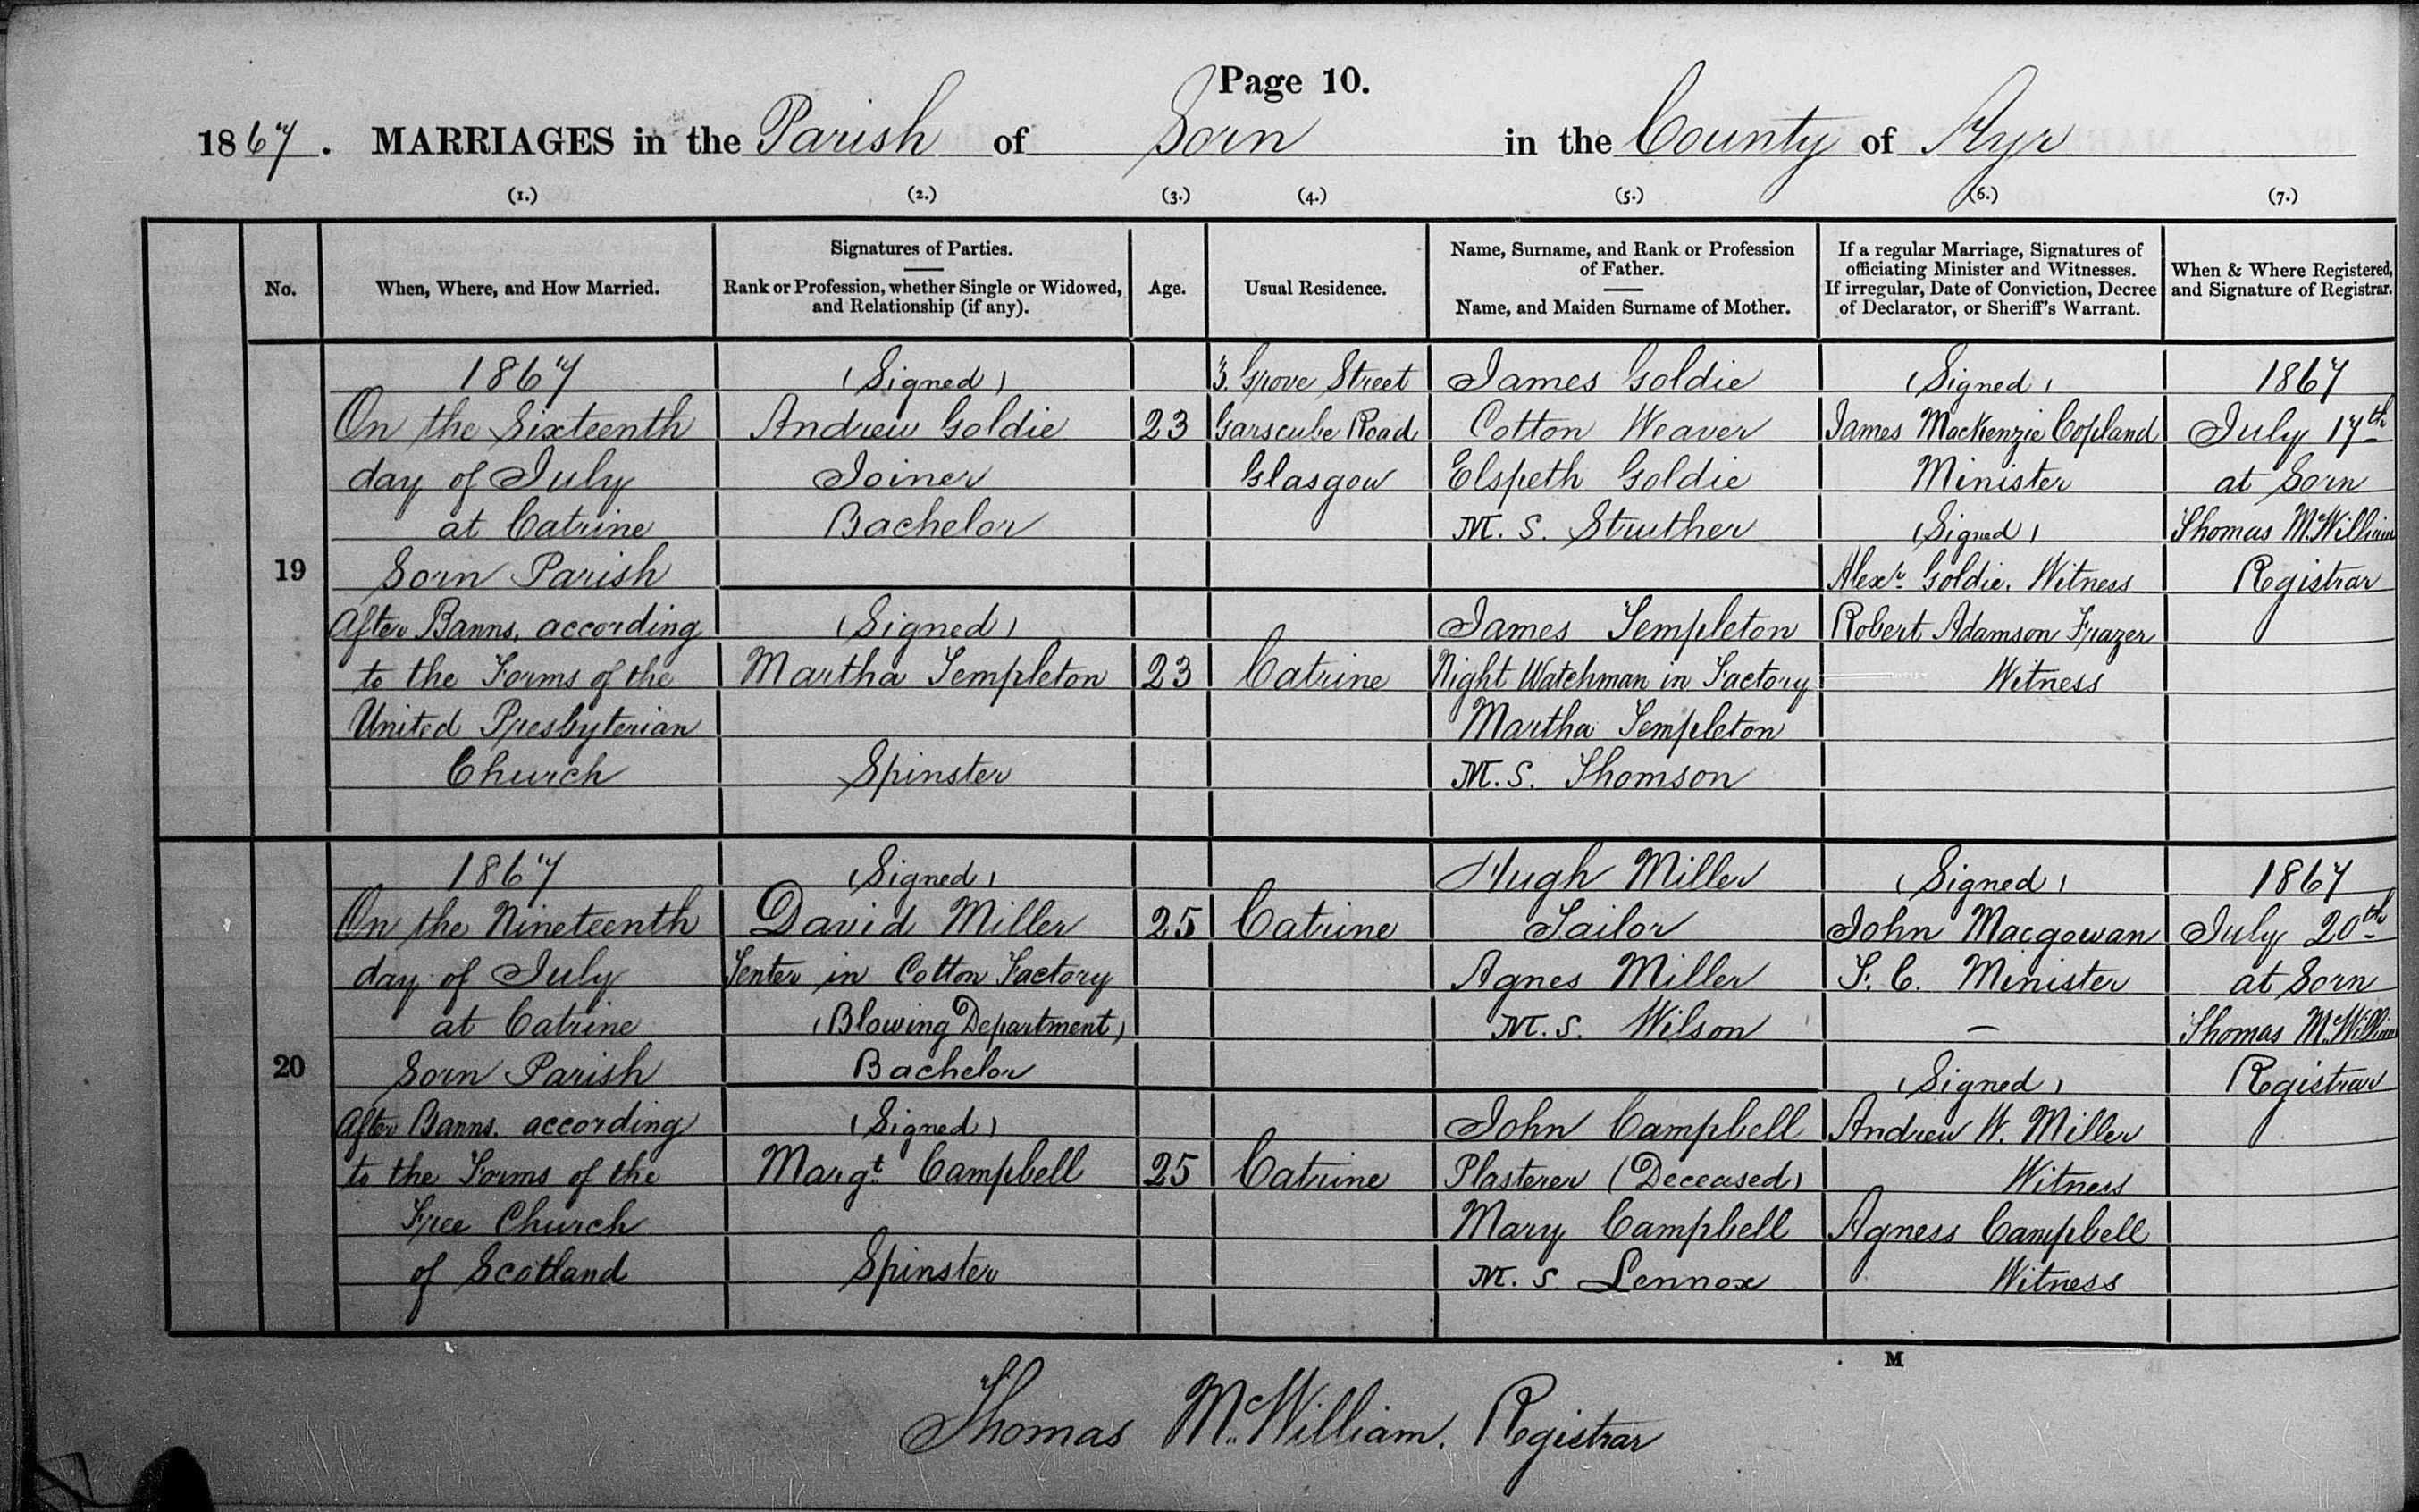 Page 10.
1867. MARRIAGES in the Parish of Sorn in the County of Ayr
(1.) (2.) (3.) (4.) (5.) (6.) (7.)
No.
When, Where, and How Married.
Signatures of Parties.
Rank or Profession, whether Single or Widowed,
and Relationship (if any).
Age.
Usual Residence.
Name, Surname, and Rank or Profession
of Father.
Name, and Maiden Surname of Mother.
If a regular Marriage, Signatures of
officiating Minister and Witnesses.
If irregular, Date of Conviction, Decree
of Declarator, or Sheriff's Warrant.
When & Where Registered,
and Signature of Registrar.
19
1867
On the Sixteenth
day of July
at Catrine
Sorn Parish
After Banns, according
to the Forms of the
United Presbyterian
Church
(Signed)
Andrew Goldie
Joiner
Bachelor
(Signed)
Martha Templeton
Spinster
23
23
3. Grove Street
Garscube Road
Glasgow
Catrine
James Goldie
Cotton Weaver
Elspeth Goldie
M. S. Struther
James Templeton
Night Watchman in Factory
Martha Templeton
M. S. Thomson
(Signed)
James Mackenzie Copland
Minister
(Signed)
Alexr. Goldie, Witness
Robert Adamson Frazer
Witness
1867
July 17th
at Sorn
Thomas McWilliam
Registrar
20
1867
On the Nineteenth
day of July
at Catrine
Sorn Parish
After Banns. according
to the Forms of the
Free Church
of Scotland
(Signed)
David Miller
Tenter in Cotton Factory
(Blowing Department)
Bachelor
(Signed)
Margt. Campbell
Spinster
25
25
Catrine
Catrine
Hugh Miller
Tailor
Agnes Miller
M. S. Wilson
John Campbell
Plasterer (Deceased)
Mary Campbell
M. S. Lennox
(Signed)
John Macgowan
F. C. Minister
(Signed)
Andrew W. Miller
Witness
Agness Campbell
Witness
1867
July 20th
at Sorn
Thomas McWilliam
Registrar
M
Thomas McWilliam. Registrar